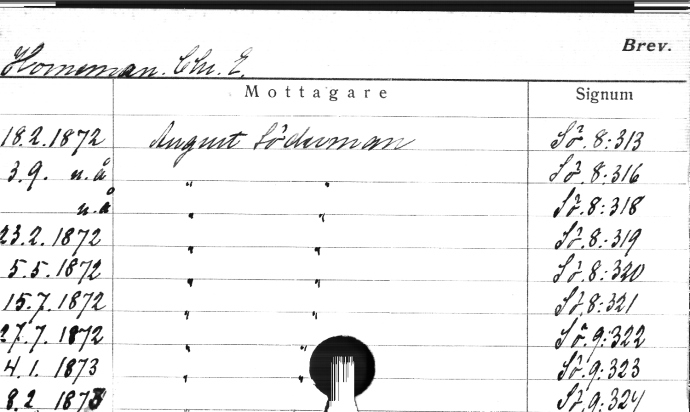 Brev.
Horneman. Chr. E.
Mottagare Signum
18.2.1872 August Söderman Sö. 8:313
3.9. u.å " " Sö. 8:316
u.å " " Sö. 8:318
23.2.1872 " " Sö. 8:319
5.5.1872 " " Sö. 8:320
15.7.1872 " " Sö. 8:321
27.7.1872 " " Sö. 9:322
4.1.1873 " " Sö. 9:323
8.2 1873 Sö. 9:324